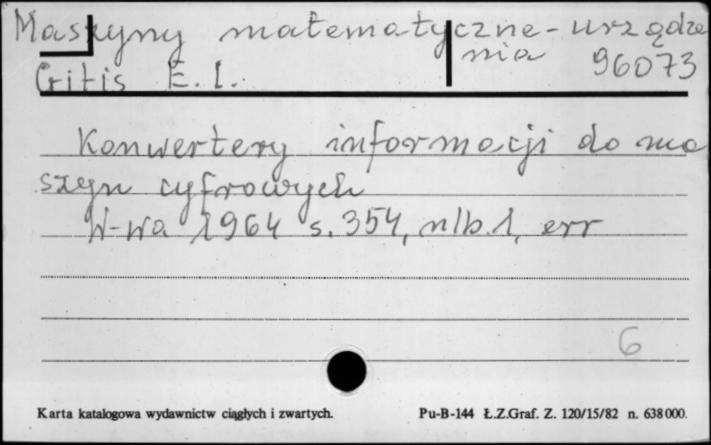 Maszyny matematyczne - urządze
nia 96073
Gitis E. I.
Konwertery informacji do ma
szyn cyfrowych
W-wa 1964 s. 354, nlb. 1, err
6
Karta katalogowa wydawnictw ciągłych i zwartych. Pu-B-144 Ł.Z.Graf. Z. 120/15/82 n. 638000.